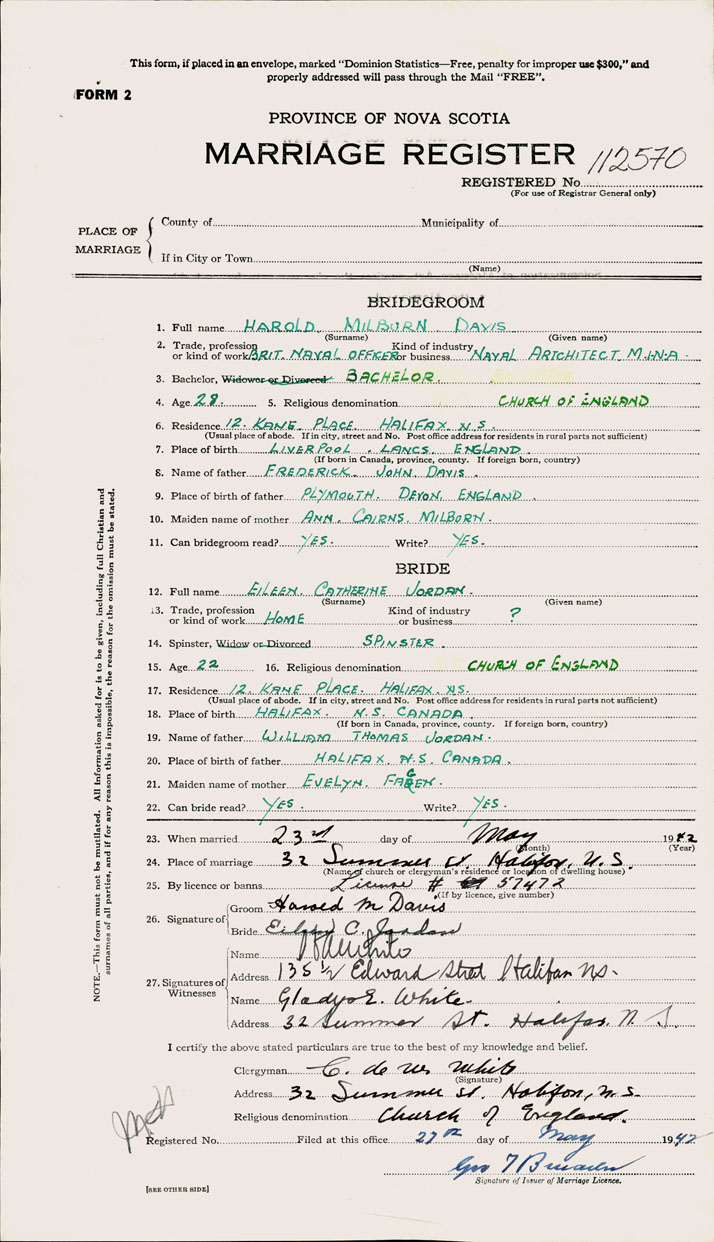 This form, if placed in an envelope, marked "Dominion Statistics—Free, penalty for improper use $300," and
properly addressed will pass through the Mail "FREE".
FORM 2
PROVINCE OF NOVA SCOTIA
MARRIAGE REGISTER 112570
REGISTERED No.
(For use of Registrar General only)
PLACE OF MARRIAGE
County of Municipality of
If in City or Town
(Name)
BRIDEGROOM
1. Full name HAROLD MILBURN DAVIS
(Surname) (Given name)
2. Trade, profession or kind of work BRIT. NAVAL OFFICER Kind of industry or business NAVAL ARTCHITECT M.I.N.A.
3. Bachelor, Widower or Divorced BACHELOR.
4. Age 28. 5. Religious denomination CHURCH OF ENGLAND
6. Residence 12. KANE PLACE. HALIFAX N.S.
(Usual place of abode. If in city, street and No. Post office address for residents in rural parts not sufficient)
7. Place of birth LIVERPOOL. LANCS. ENGLAND.
(If born in Canada, province, county. If foreign born, country)
8. Name of father FREDERICK. JOHN. DAVIS.
9. Place of birth of father PLYMOUTH. DEVON. ENGLAND.
10. Maiden name of mother ANN. CAIRNS. MILBORN.
11. Can bridegroom read? YES. Write? YES.
BRIDE
12. Full name EILEEN. CATHERINE JORDAN.
(Surname) (Given name)
13. Trade, profession or kind of work HOME Kind of industry or business ?
14. Spinster, Widow or Divorced SPINSTER.
15. Age 22 16. Religious denomination CHURCH OF ENGLAND
17. Residence 12. KANE PLACE. HALIFAX. N.S.
(Usual place of abode. If in city, street and No. Post office address for residents in rural parts not sufficient)
18. Place of birth HALIFAX. N.S. CANADA.
(If born in Canada, province, county. If foreign born, country)
19. Name of father WILLIAM THOMAS JORDAN.
20. Place of birth of father HALIFAX. N.S. CANADA.
21. Maiden name of mother EVELYN.
22. Can bride read? YES. Write? YES.
23. When married 23rd day of May 1942
(Month) (Year)
24. Place of marriage 32 Summer St. Halifax, N.S.
(Name of church or clergyman's residence or location of dwelling house)
25. By licence or banns License # 57472
(If by licence, give number)
26. Signature of
Groom Harold M Davis
Bride Eileen C. Jordan
27. Signatures of Witnesses
Name
Address 135 1/2 Edward Street Halifax NS.
Name Gladys E. White.
Address 32 Summer St. Halifax, N.S.
I certify the above stated particulars are true to the best of my knowledge and belief.
Clergyman C. de W. White
(Signature)
Address 32 Summer St. Halifax, N.S.
Religious denomination Church of England.
Registered No. Filed at this office 27th day of May 1942
Signature of Issuer of Marriage Licence.
[SEE OTHER SIDE]
NOTE.—This form must not be mutilated. All information asked for is to be given, including full Christian and
surnames of all parties, and if for any reason this is impossible, the reason for the omission must be stated.